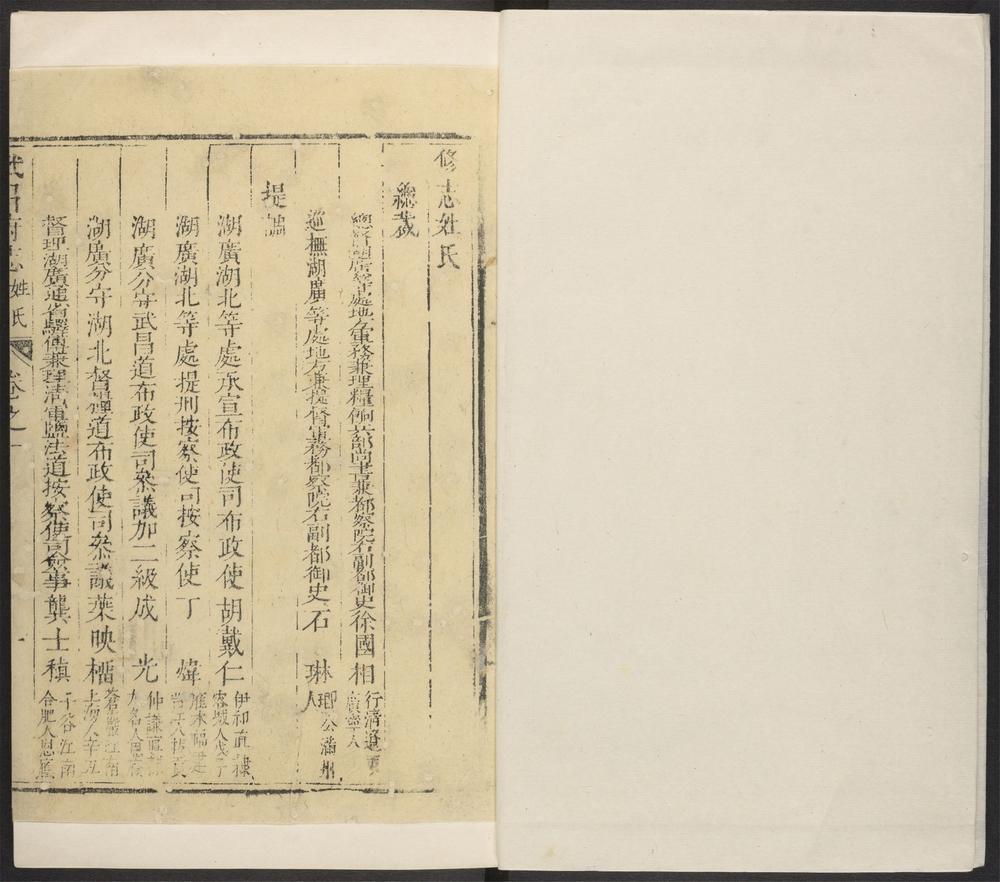 修志姓氏
總裁
總督湖廣等處地方軍務兼理糧餉兵部尚書兼都察院右副都御史徐國相 行清遼東廣寧人
巡撫湖廣等處地方兼提督軍務都察院右副都御史石琳 瑯公滿州人
提調
湖廣湖北等處承宣布政使司布政使胡戴仁 伊和直隸容城人戊子
湖廣湖北等處提刑按察使司按察使丁煒 雁水福建晉江人拔貢
湖廣分守武昌道布政使司叅議加二級成光 仲謙直隸大名人
湖廣分守湖北督糧道布政使司叅議葉映榴 蒼巖江南上海人辛丑
督理湖廣通省驛傳兼理清軍鹽法道按察使司僉事龔士稹 千谷江南合肥人恩廕
武昌府志 姓氏 卷之一 一